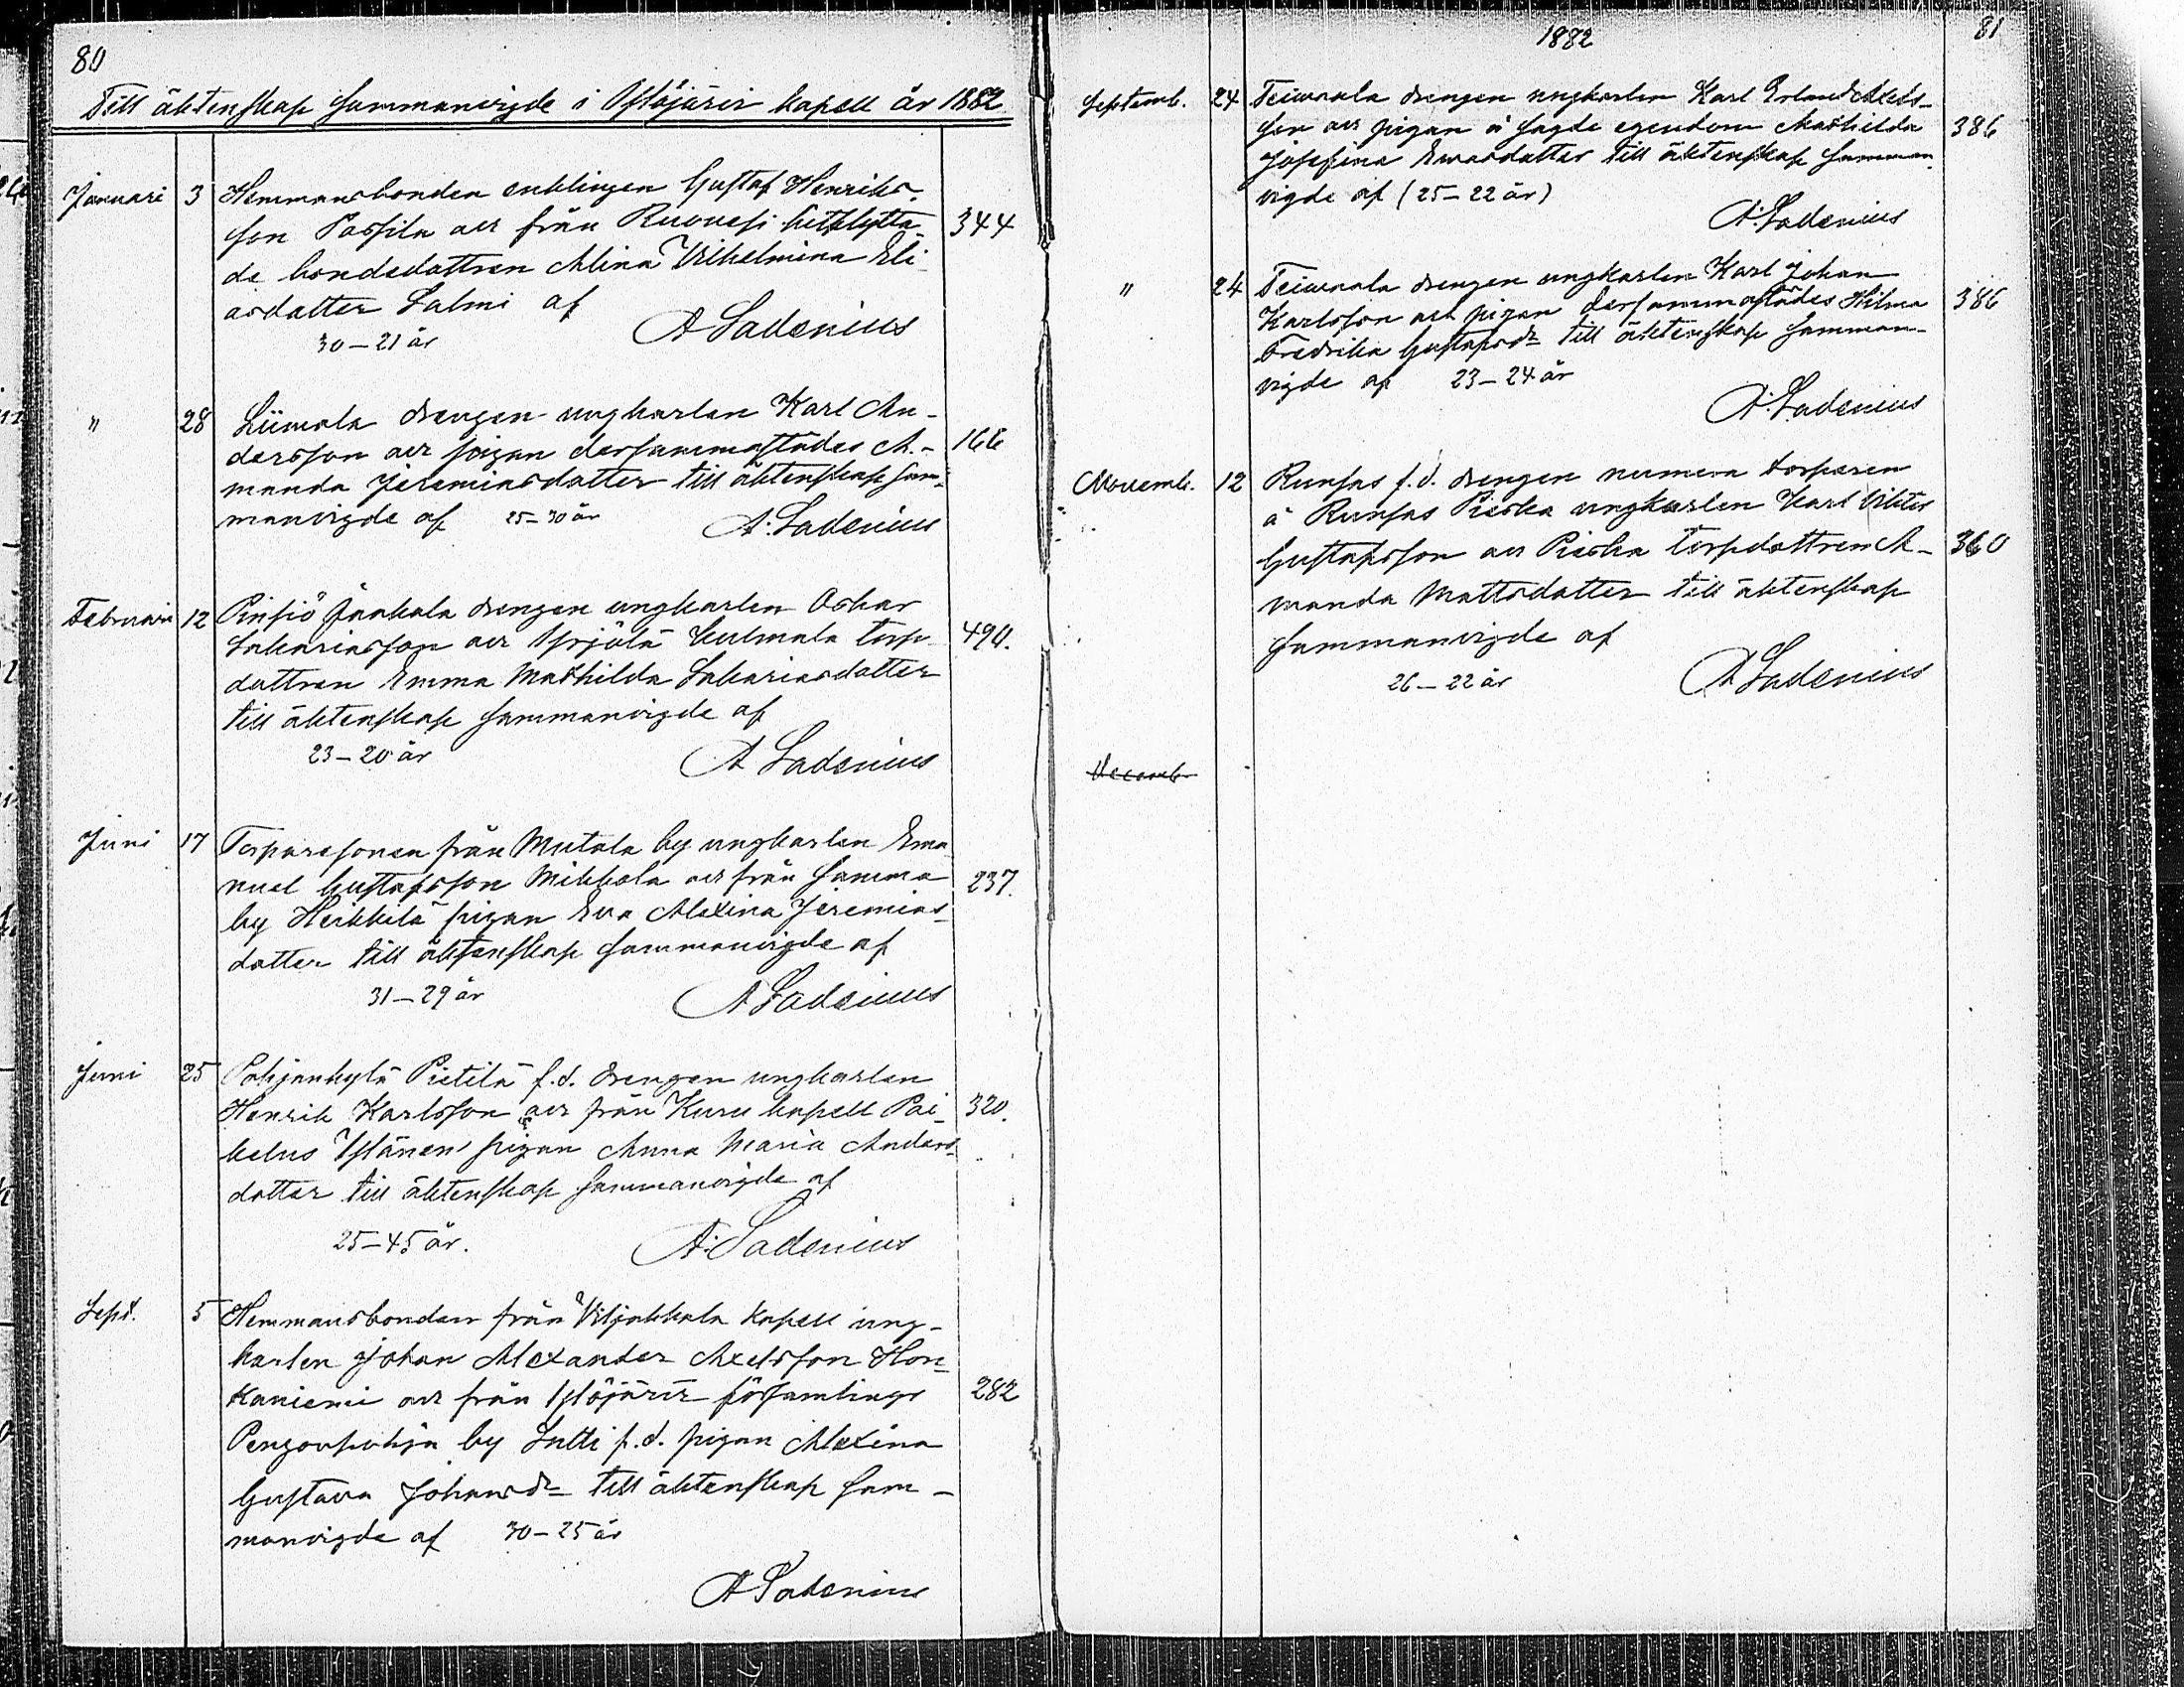 80
Till äktenskap sammanvigde i Ylöjärvi kapell år 1882
Januari 3 Hemmansbonden enklingen Gustaf Henriks-
son Passila och från Ruovesi hitflytta- 344
de bondedottren Alina Vilhelmina Eli-
asdotter Salmi af
30-21 år A Ladenius
" 28 Liimola drengen ungkarlen Karl An-
dersson och pigan dersammastädes A- 166
manda Jeremiasdotter till äktenskap sam-
manvigde af 25-30 år A: Ladenius
Februari 12 Pinsiö Jaakola drengen ungkarlen Oskar
Sakariasson och Yrjölä Kulmala torp- 490.
dottren Emma Mathilda Sakariasdotter
till äktenskap sammanvigde af
23-20 år A Ladenius
Juni 17 Torparesonen från Mutala by ungkarlen Ema-
nuel Gustafsson Mikkola och från samma 237.
by Heikkilä pigan Eva Alexina Jeremias-
dotter till äktenskap sammanvigde af
31-29 år A Ladenius
Juni 25 Pohjankylä Pietilä f.d. drengen ungkarlen
Henrik Karlsson och från Kuru kapell Pai- 320.
kelus pigan Anna Maria Anders-
dotter till äktenskap sammanvigde af
25-45 år. A: Ladenius
Sept. 5 Hemmansbonden från Viljakkala kapell ung-
karlen Johan Alexander Axelsson Hon-
kaniemi och från Ylöjärvi församlings 282
Pengonpohja by Lutti f.d. pigan Alexina
Gustava Johansdr till äktenskap sam-
manvigde af 30-25 år
A Ladenius
1882 81
Septemb. 24 Teivaala drengen ungkarlen Karl Erland Axels-
son och pigan å sagde egendom Mathilda 386
Josefina Evasdotter till äktenskap samman-
vigde af (25-22 år)
A: Ladenius
" 24 Teivaala drengen ungkarlen Karl Johan
Karlsson och pigan dersammastädes Hilma 386
Fredrika Gustafsdr till äktenskap samman-
vigde af 23-24 år
A: Ladenius
Novemb. 12 Runsas f.d. drengen numera torparen
å Runsas Pieska ungkarlen Karl Viktor
Gustafsson och Pieska torpdottren A- 360
manda Mattsdotter till äktenskap
sammanvigde af
26-22 år A Ladenius
Decemb